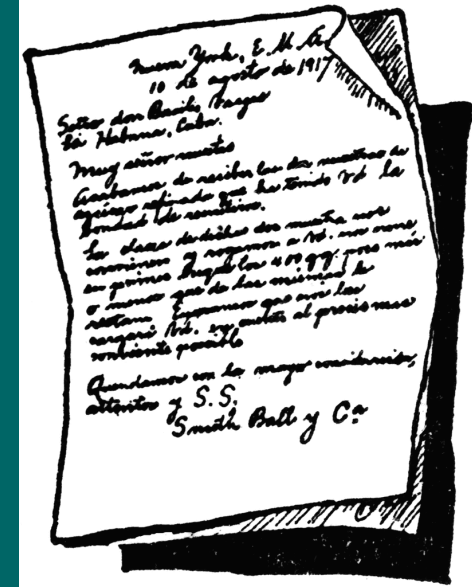 Nueva York, E. U. A.
10 de agosto de 1917
Señor don Basilio Vargas
La Habana, Cuba.
Muy señor nuestro
Acabamos de recibir las dos muestras de
azúcar refinado que ha tenido Vd la
bondad de remitirnos.
La clase de dicha dos muestra nos
conviene y rogamos a Vd. nos
su primer los 400 qq. poco más
o menos que de las mismas le
restan. Esperamos que nos las
cargará Vd. en cuenta al precio mas
conveniente posible
Quedamos con la mayor consideración,
atentos y S. S.
Smith Ball y Cª